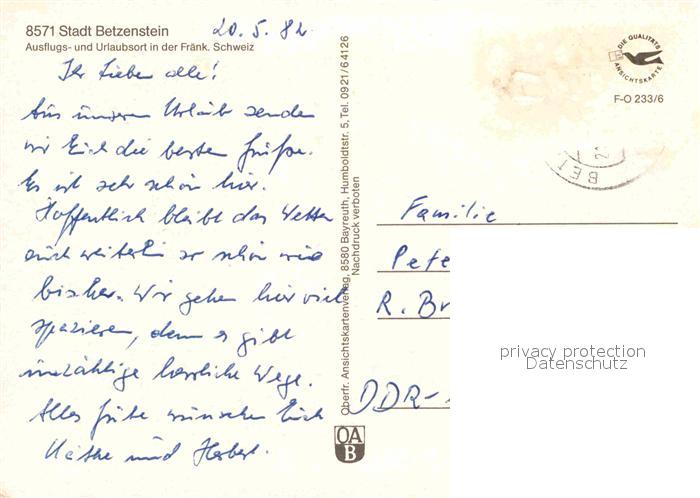 8571 Stadt Betzenstein
20.5.82
Ausflugs- und Urlaubsort in der Fränk. Schweiz
Ihr Lieben alle!
Aus unserem Urlaub senden
wir Euch die besten Grüße.
Es ist sehr schön hier.
Hoffentlich bleibt das Wetter
auch weiterhin so schön wie
bisher. Wir gehen hier viel
spazieren, denn es gibt
unzählige herrliche Wege.
Alles Gute wünschen Euch
Käthe und Herbert.
Oberfr. Ansichtskartenverlag, 8580 Bayreuth, Humboldtstr. 5, Tel. 0921/64126
Nachdruck verboten
OA
B
DIE QUALITÄTS
ANSICHTSKARTE
F-O 233/6
BET
Familie
Pete
R. Br
DDR-
privacy protection
Datenschutz